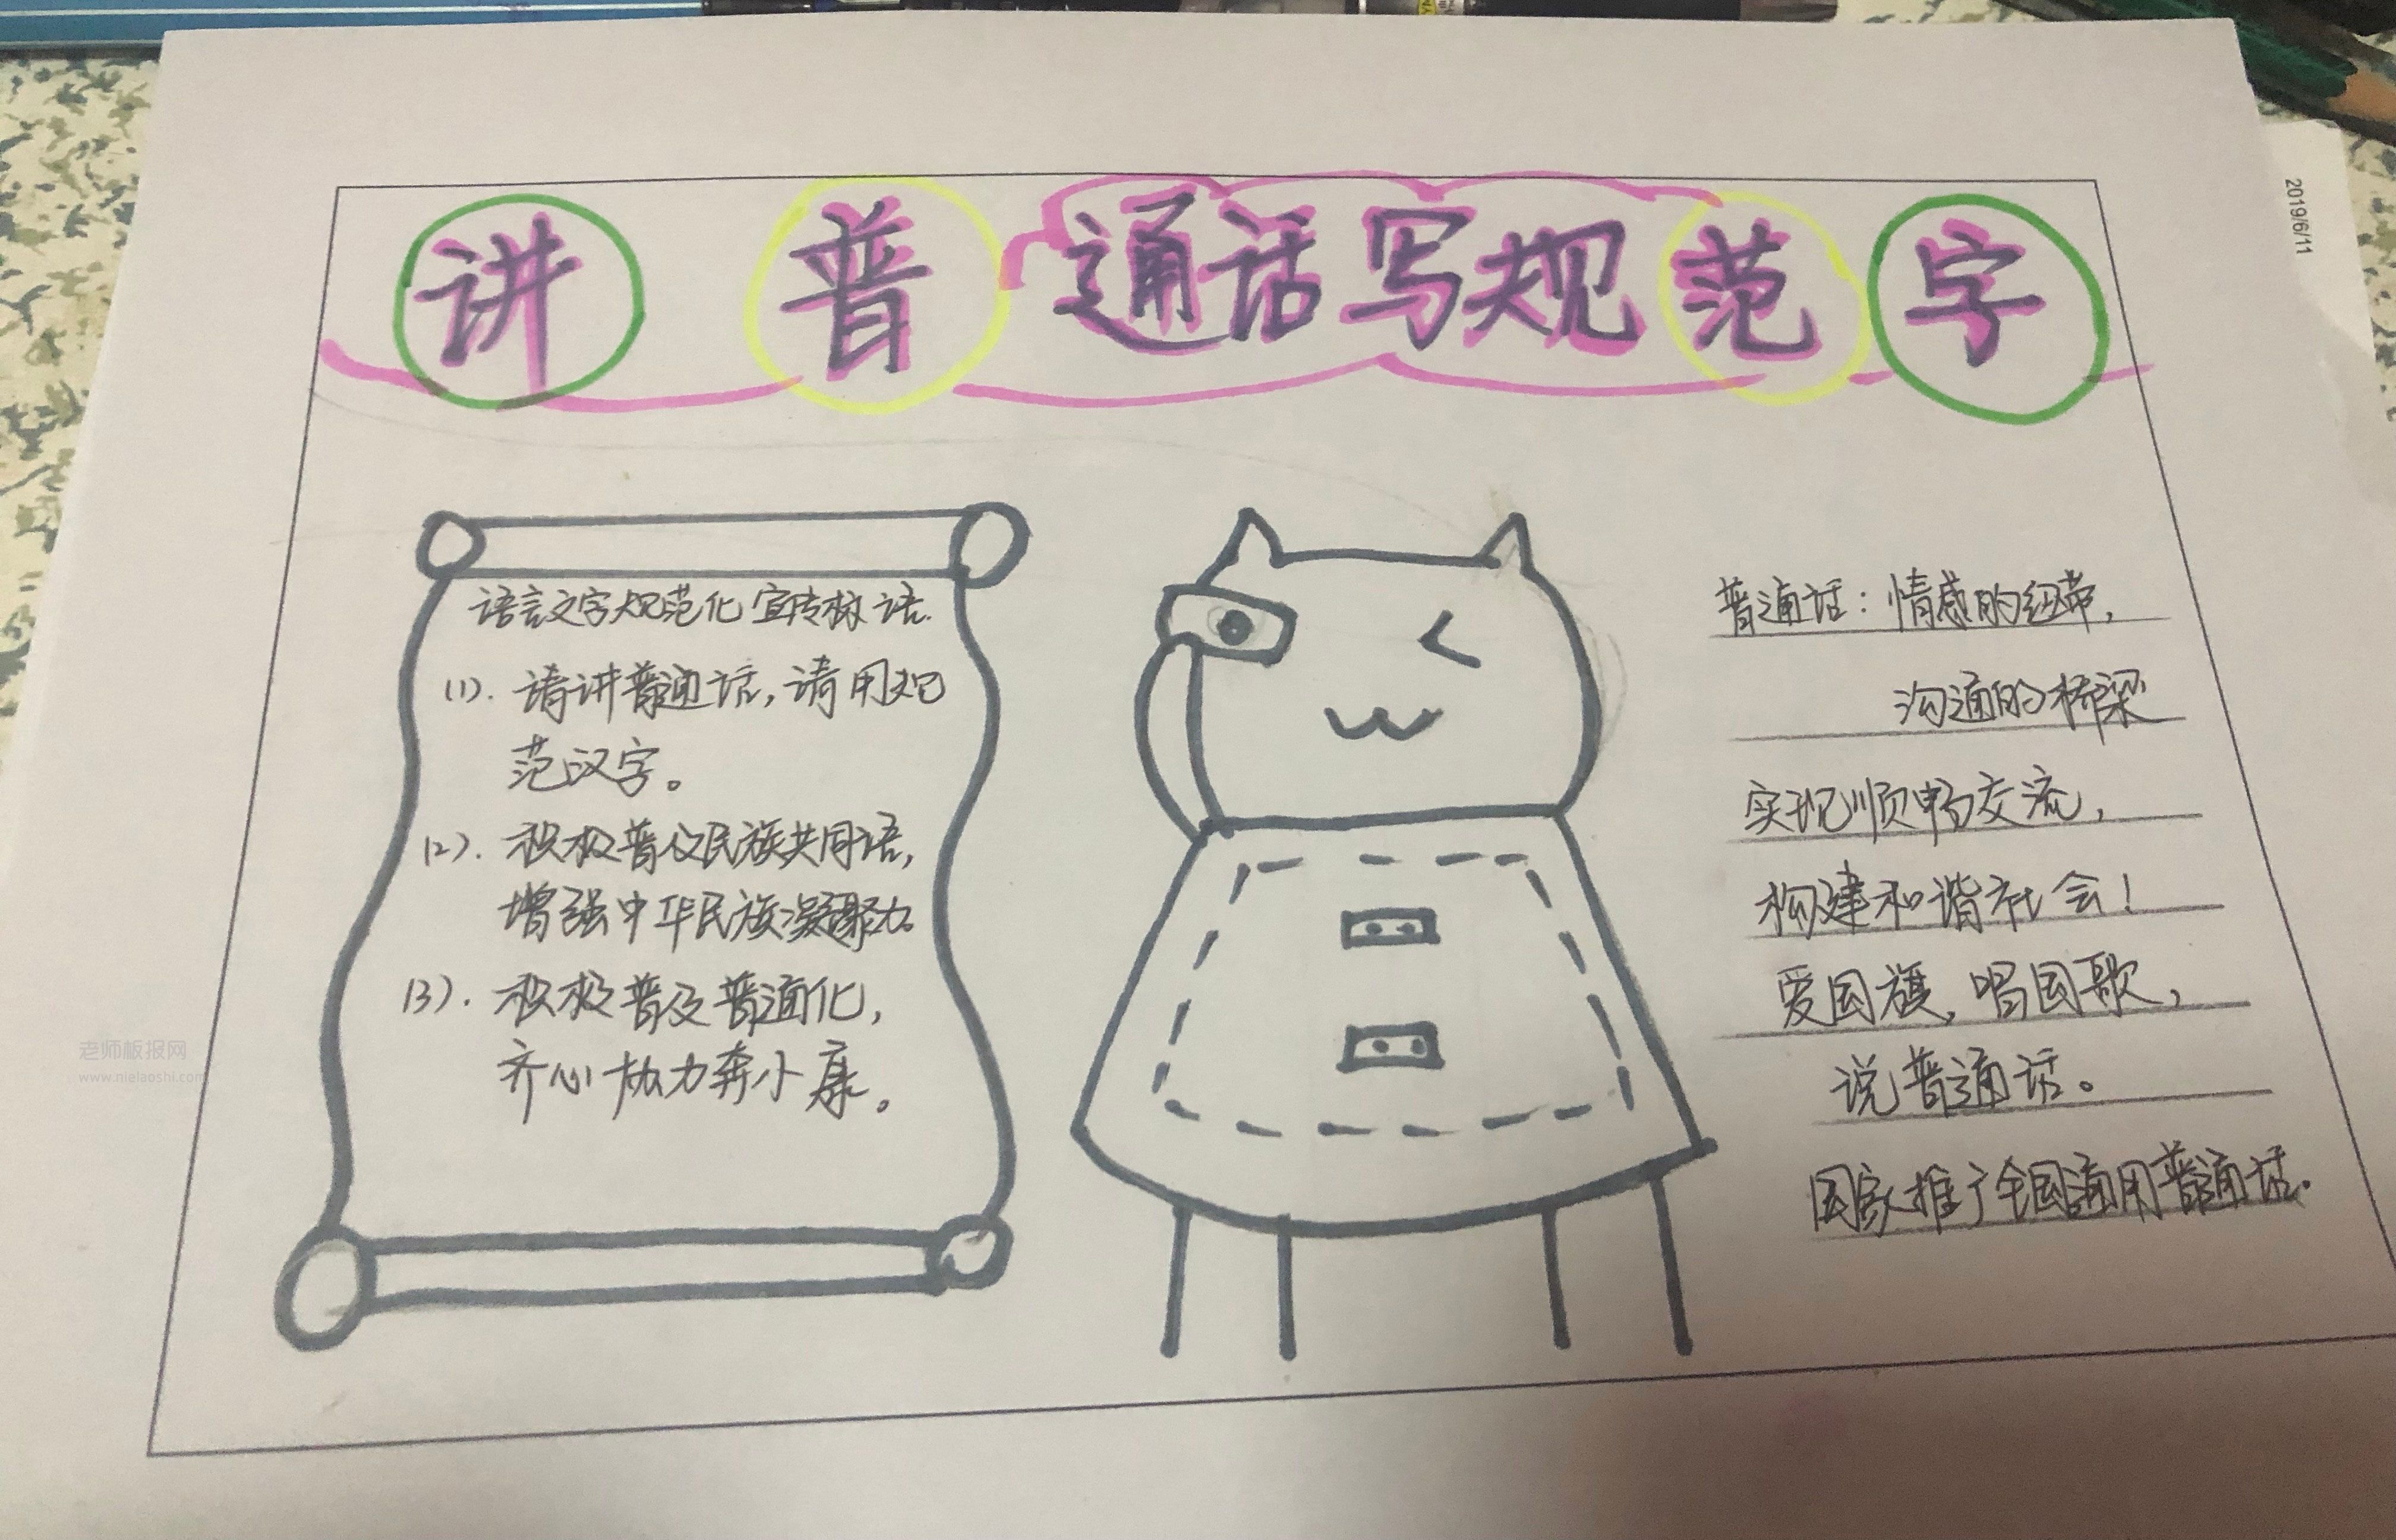 讲普通话写规范字
语言文字规范化宣传标语.
(1). 请讲普通话,请用规
范汉字。
(2). 积极普及民族共同语,
增强中华民族凝聚力。
(3). 积极普及普通化,
齐心协力奔小康。
普通话:情感的纽带,
沟通的桥梁
实现顺畅交流,
构建和谐社会!
爱国旗,唱国歌,
说普通话。
国家推广全国通用普通话.
2019/6/11
老师板报网
www.nielaoshi.com